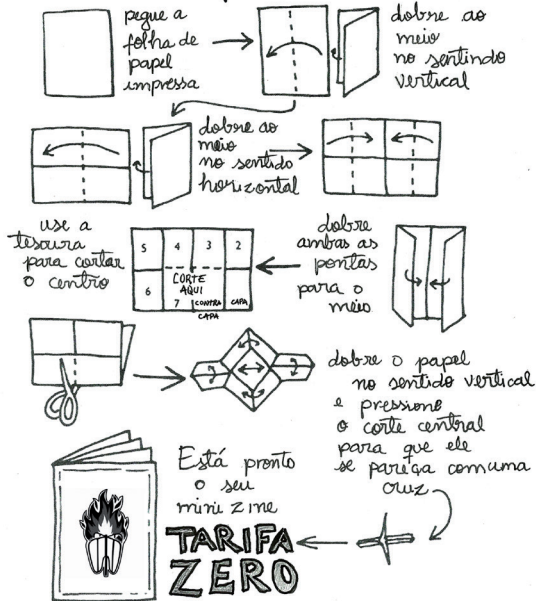 pegue a
folha de
papel
impressa
dobre ao
meio
no sentindo
vertical
dobre ao
meio
no sentido
horizontal
use a
tesoura
para cortar
o centro
5 4 3 2
CORTE
AQUI
6 7 CONTRA CAPA
CAPA
dobre
ambas as
pontas
para o
meio
dobre o papel
no sentido vertical
e pressione
o corte central
para que ele
se pareça com uma
cruz
Está pronto
o seu
mini zine
TARIFA
ZERO